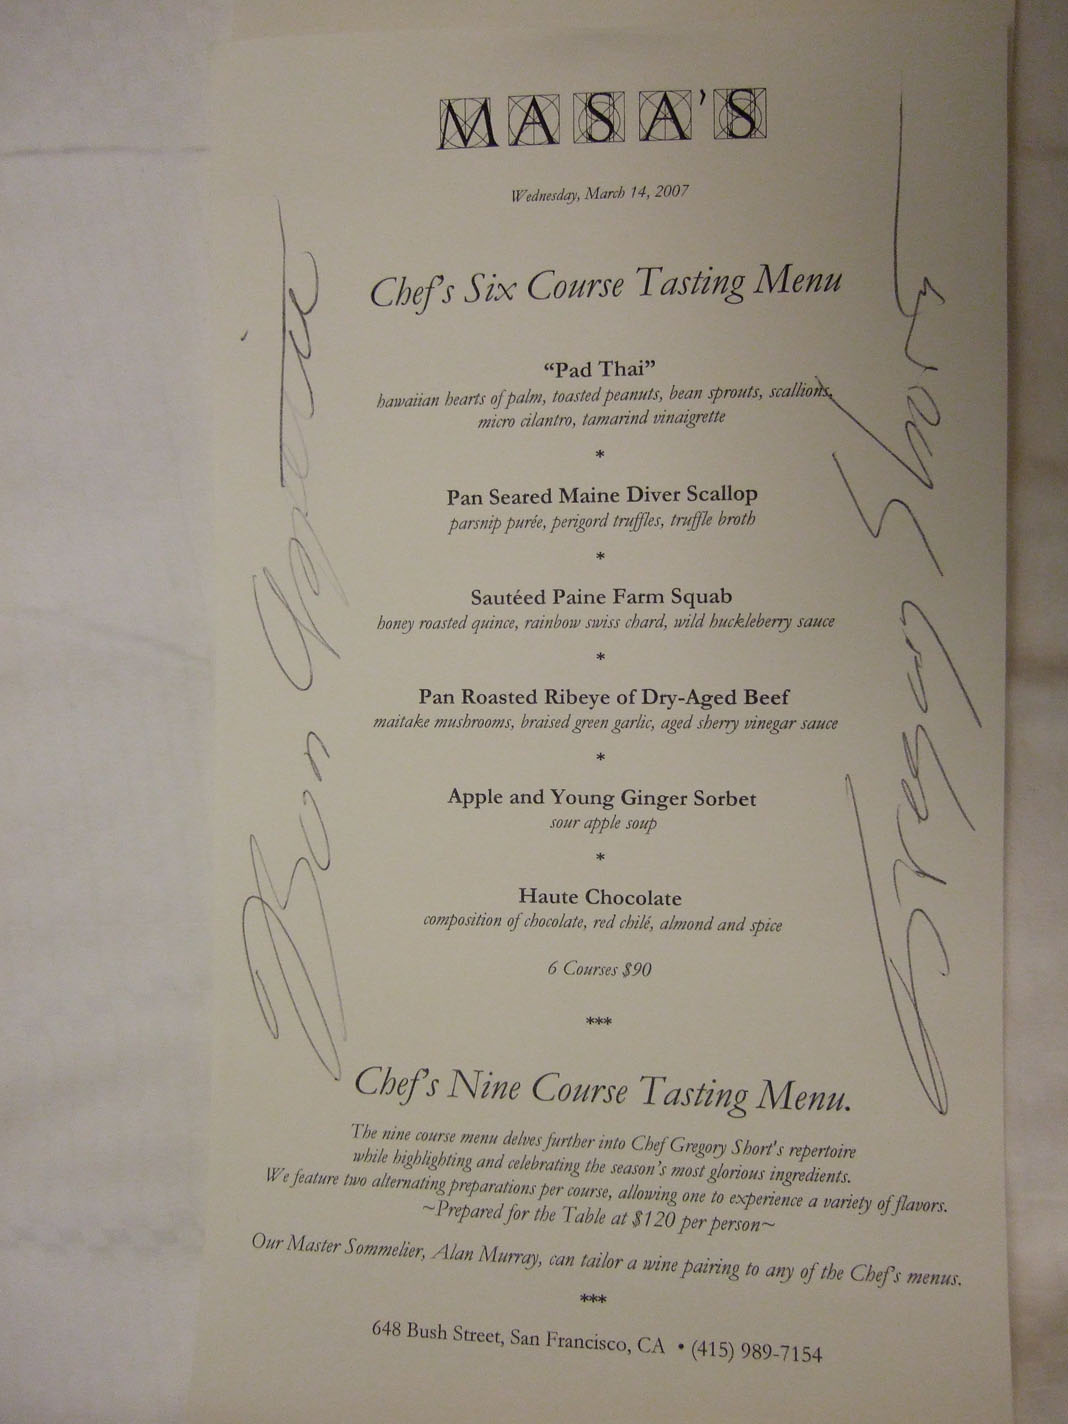 MASA'S
Wednesday, March 14, 2007
Chef's Six Course Tasting Menu
“Pad Thai”
hawaiian hearts of palm, toasted peanuts, bean sprouts, scallions,
micro cilantro, tamarind vinaigrette
*
Pan Seared Maine Diver Scallop
parsnip purée, perigord truffles, truffle broth
*
Sautéed Paine Farm Squab
honey roasted quince, rainbow swiss chard, wild huckleberry sauce
*
Pan Roasted Ribeye of Dry-Aged Beef
maitake mushrooms, braised green garlic, aged sherry vinegar sauce
*
Apple and Young Ginger Sorbet
sour apple soup
*
Haute Chocolate
composition of chocolate, red chilé, almond and spice
6 Courses $90
***
Chef's Nine Course Tasting Menu.
The nine course menu delves further into Chef Gregory Short's repertoire
while highlighting and celebrating the season's most glorious ingredients.
We feature two alternating preparations per course, allowing one to experience a variety of flavors.
~Prepared for the Table at $120 per person~
Our Master Sommelier, Alan Murray, can tailor a wine pairing to any of the Chef's menus.
***
648 Bush Street, San Francisco, CA • (415) 989-7154
Bon Appetit